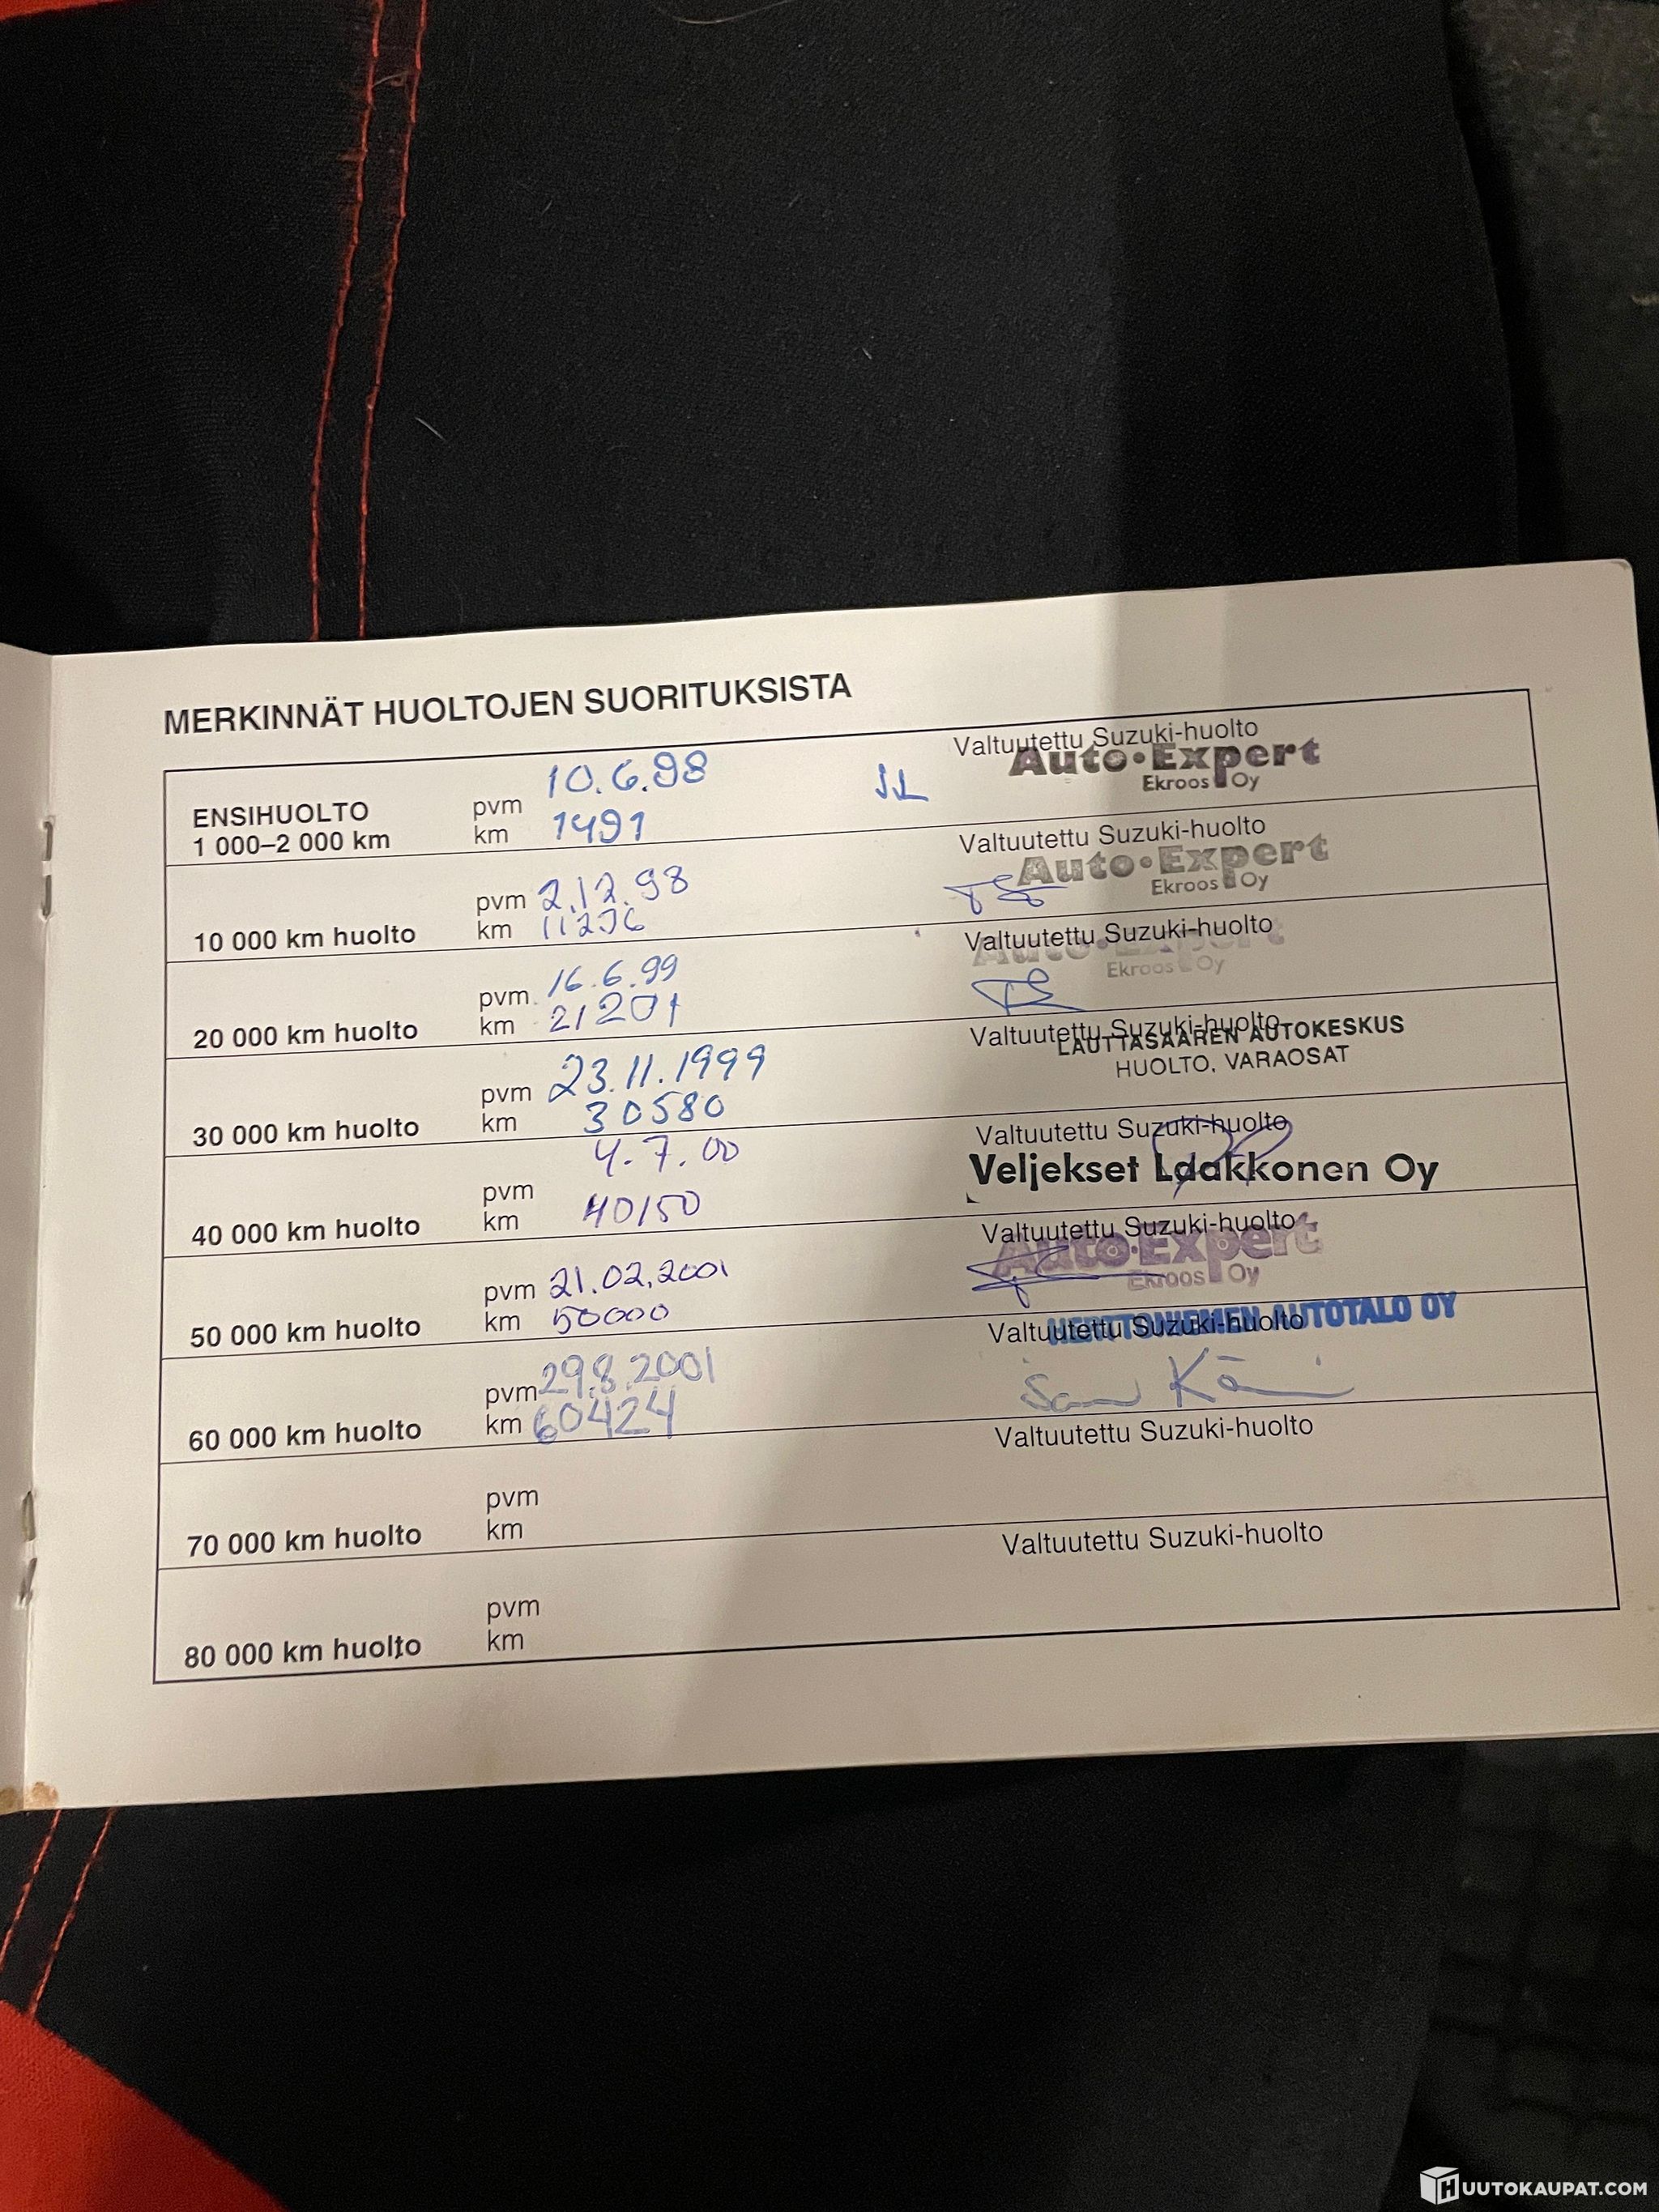 MERKINNÄT HUOLTOJEN SUORITUKSISTA
ENSIHUOLTO
1 000–2 000 km
pvm 10.6.98
km 1491
JL
Valtuutettu Suzuki-huolto
Auto•Expert
Ekroos Oy
10 000 km huolto
pvm 2.12.98
km
Valtuutettu Suzuki-huolto
Auto•Expert
Ekroos Oy
20 000 km huolto
pvm 16.6.99
km 21201
Valtuutettu Suzuki-huolto
Auto•Expert
Ekroos Oy
30 000 km huolto
pvm 23.11.1999
km 30580
Valtuutettu Suzuki-huolto
LAUTTASAAREN AUTOKESKUS
HUOLTO, VARAOSAT
40 000 km huolto
pvm 4.7.00
km 40150
Valtuutettu Suzuki-huolto
Veljekset Laakkonen Oy
50 000 km huolto
pvm 21.02.2001
km 50000
Valtuutettu Suzuki-huolto
Auto•Expert
Ekroos Oy
60 000 km huolto
pvm 29.8.2001
km 60424
Valtuutettu Suzuki-huolto
HERTTONIEMEN AUTOTALO OY
70 000 km huolto
pvm
km
Valtuutettu Suzuki-huolto
80 000 km huolto
pvm
km
Valtuutettu Suzuki-huolto
HUUTOKAUPAT.COM